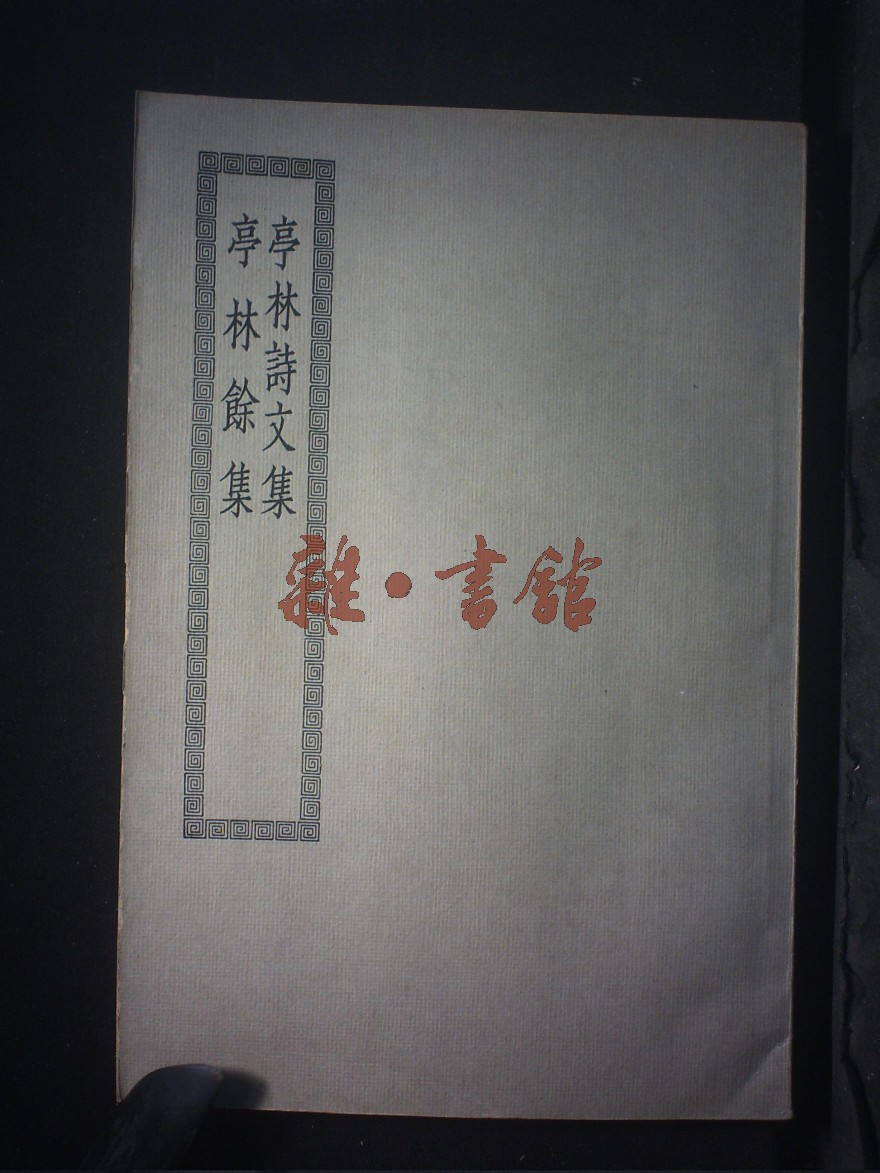 亭林詩文集
亭林餘集
雜·書館